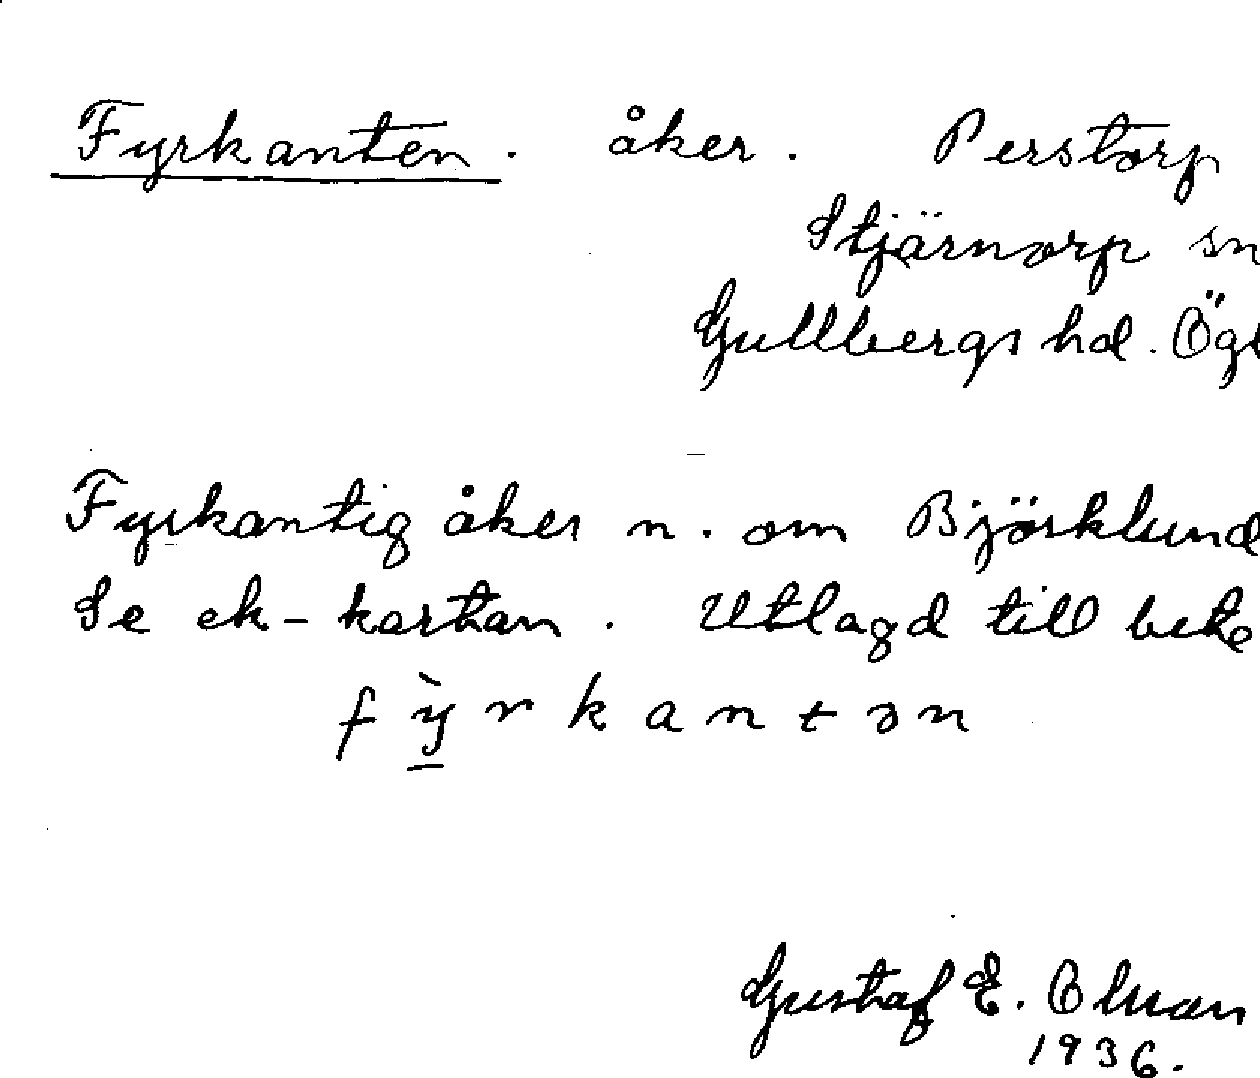 Fyrkanten. åker. Perstorp
Stjärnorp sn
Gullbergs hd. Ögl
Fyrkantig åker n. om Björklund
Se ek-kartan. Utlagd till bete
fỳrkantən
Gustaf E. Olsson
1936.